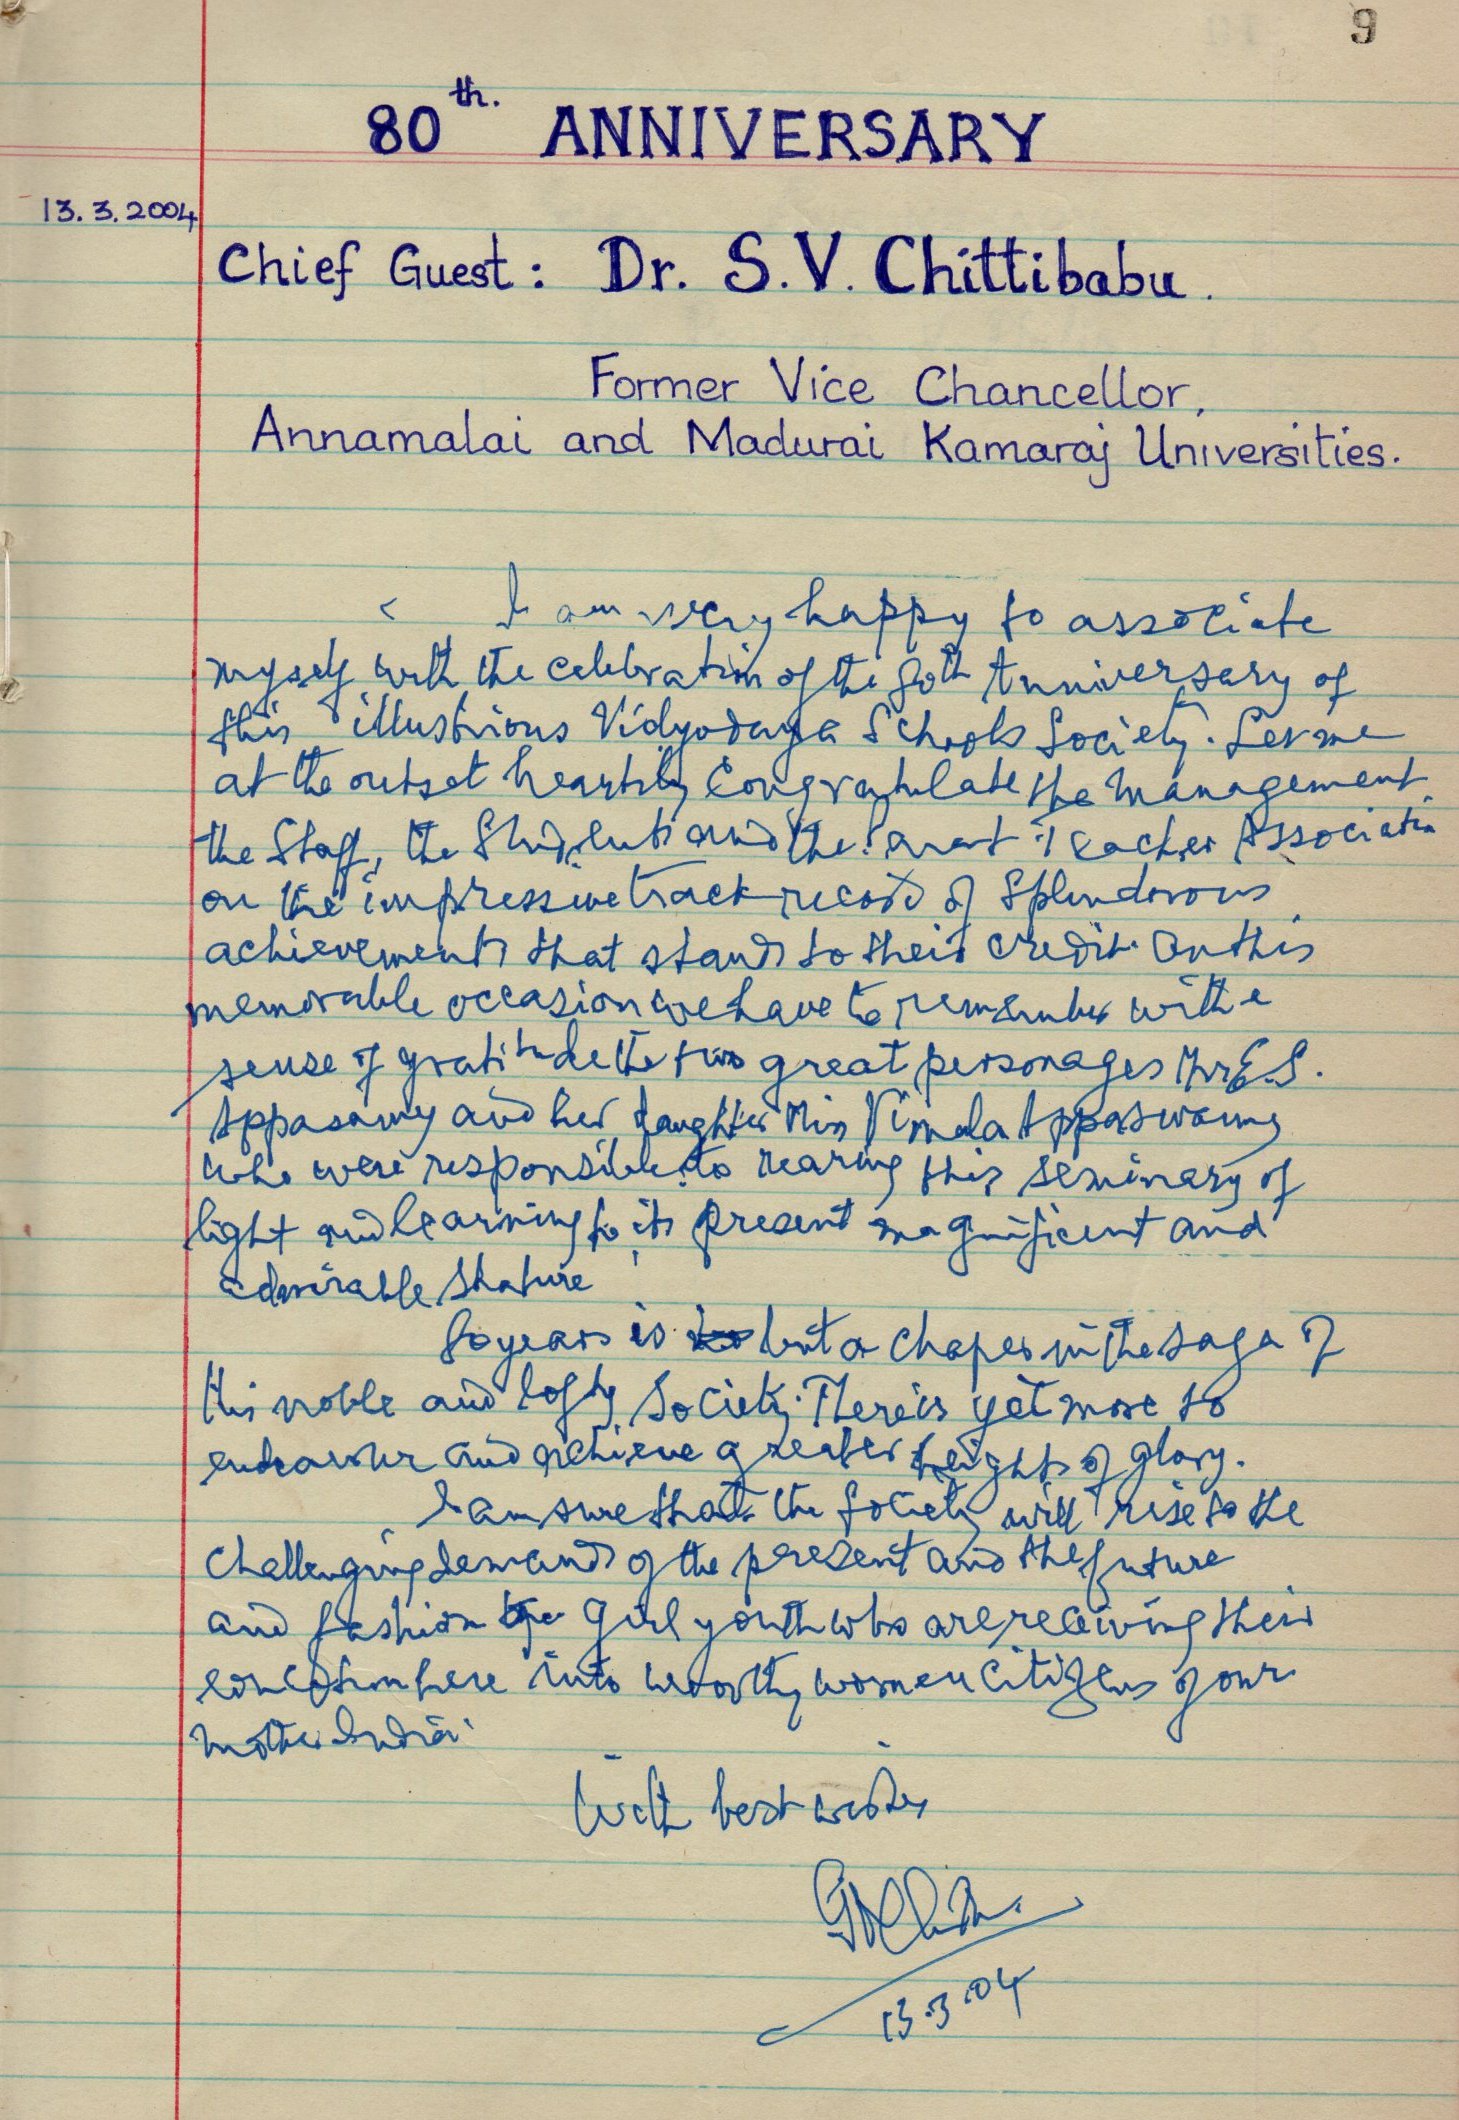 9
80th. ANNIVERSARY
13.3.2004
Chief Guest: Dr. S.V. Chittibabu.
Former Vice Chancellor,
Annamalai and Madurai Kamaraj Universities.
I am very happy to associate
myself with the celebration of the 80th Anniversary of
this illustrious Vidyodaya Schools Society. Let me
at the outset heartily congratulate the management
the Staff, the Students and the Parent Teacher Association
on the impressive track record of splendorous
achievements that stands to their credit. On this
memorable occasion we have to remember with a
sense of gratitude the two great personages Mrs E.S.
Appasamy and her daughter Miss Vimala Appaswamy
who were responsible to rearing this seminary of
light and learning to its present magnificent and
admirable stature
80 years is but a chapter in the saga of
this noble and lofty Society. There is yet more to
endeavour and achieve greater heights of glory.
I am sure that the Society will rise to the
challenging demands of the present and the future
and fashion the girl youth who are receiving their
education here into worthy women citizens of our
mother India.
With best wishes
13.3.04